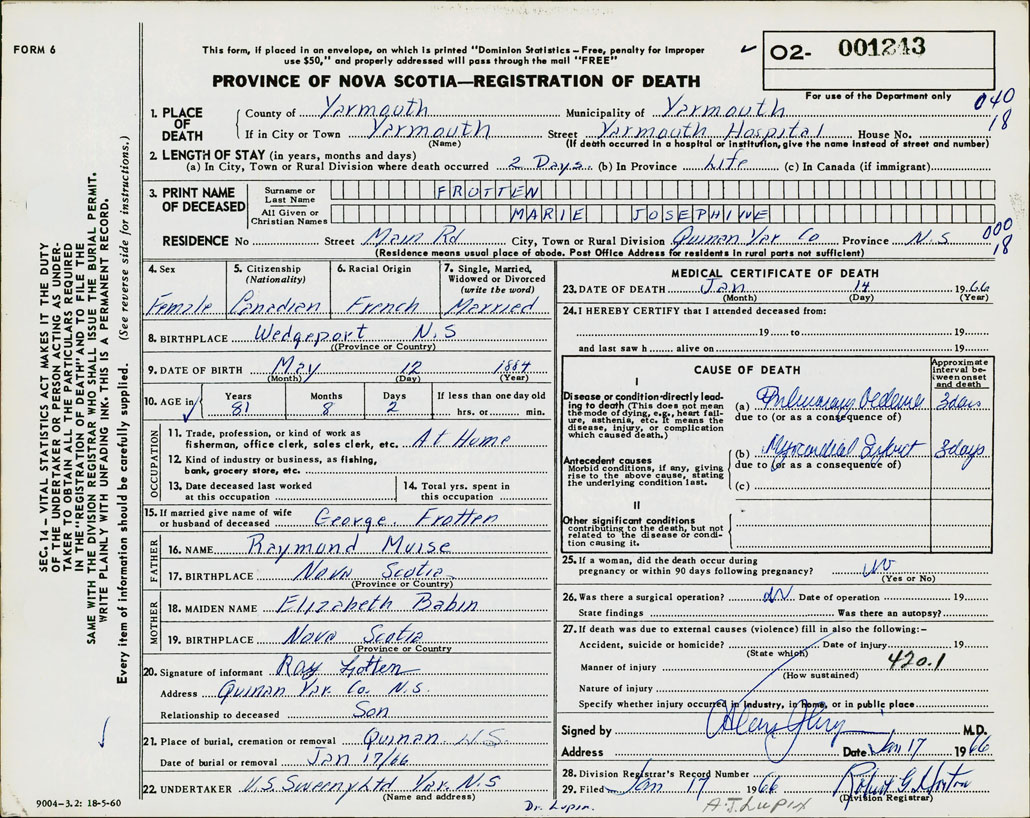 FORM 6
This form, if placed in an envelope, on which is printed "Dominion Statistics – Free, penalty for improper
use $50," and properly addressed will pass through the mail "FREE"
PROVINCE OF NOVA SCOTIA—REGISTRATION OF DEATH
O2- 001243
For use of the Department only
040
18
1. PLACE OF DEATH
County of Yarmouth Municipality of Yarmouth
If in City or Town Yarmouth Street Yarmouth Hospital House No.
(Name) (If death occurred in a hospital or institution, give the name instead of street and number)
2. LENGTH OF STAY (in years, months and days)
(a) In City, Town or Rural Division where death occurred 2 Days. (b) In Province Life (c) In Canada (if immigrant)
3. PRINT NAME OF DECEASED
Surname or Last Name FROTTEN
All Given or Christian Names MARIE JOSEPHINE
RESIDENCE No Street Main Rd City, Town or Rural Division Quinan Yar Co Province N.S
000
18
(Residence means usual place of abode. Post Office Address for residents in rural parts not sufficient)
4. Sex Female
5. Citizenship (Nationality) Canadian
6. Racial Origin French
7. Single, Married, Widowed or Divorced (write the word) Married
8. BIRTHPLACE Wedgeport N.S
(Province or Country)
9. DATE OF BIRTH May 12 1884
(Month) (Day) (Year)
10. AGE in Years 81 Months 8 Days 2 If less than one day old hrs. or min.
OCCUPATION
11. Trade, profession, or kind of work as
fisherman, office clerk, sales clerk, etc. At Home
12. Kind of industry or business, as fishing,
bank, grocery store, etc.
13. Date deceased last worked
at this occupation
14. Total yrs. spent in
this occupation
15. If married give name of wife
or husband of deceased George Frotten
FATHER
16. NAME Raymond Muise
17. BIRTHPLACE Nova Scotia
(Province or Country)
MOTHER
18. MAIDEN NAME Elizabeth Babin
19. BIRTHPLACE Nova Scotia
(Province or Country)
20. Signature of informant Ray Frotten
Address Quinan Yar. Co. N.S.
Relationship to deceased Son
21. Place of burial, cremation or removal Quinan N.S.
Date of burial or removal Jan 17/66
22. UNDERTAKER V.S. Sweeny Ltd Yar. N.S
(Name and address)
9004–3.2: 18-5-60
MEDICAL CERTIFICATE OF DEATH
23. DATE OF DEATH Jan 14 1966
(Month) (Day) (Year)
24. I HEREBY CERTIFY that I attended deceased from:
19 to 19
and last saw h alive on 19
CAUSE OF DEATH
Approximate interval between onset and death
I
Disease or condition directly leading to death (This does not mean the mode of dying, e.g., heart failure, asthenia, etc. It means the disease, injury, or complication which caused death.)
(a) Pulmonary Oedema 3 days
due to (or as a consequence of)
Antecedent causes
Morbid conditions, if any, giving rise to the above cause, stating the underlying condition last.
(b) Myocardial Infarct 3 days
due to (or as a consequence of)
(c)
II
Other significant conditions
contributing to the death, but not related to the disease or condition causing it.
25. If a woman, did the death occur during
pregnancy or within 90 days following pregnancy? no
(Yes or No)
26. Was there a surgical operation? no Date of operation 19
State findings Was there an autopsy?
27. If death was due to external causes (violence) fill in also the following:–
Accident, suicide or homicide? Date of injury 19
(State which)
Manner of injury 420.1
(How sustained)
Nature of injury
Specify whether injury occurred in industry, in home, or in public place
Signed by M.D.
Address Date Jan 17 1966
28. Division Registrar's Record Number
29. Filed Jan 17 1966 Robert G. Horton
(Division Registrar)
Dr. Lupin. A.J. LUPIN
SEC. 14 – VITAL STATISTICS ACT MAKES IT THE DUTY
OF THE UNDERTAKER OR PERSON ACTING AS UNDERTAKER
TO OBTAIN ALL THE PARTICULARS REQUIRED
IN THE "REGISTRATION OF DEATH" AND TO FILE THE
SAME WITH THE DIVISION REGISTRAR WHO SHALL ISSUE THE BURIAL PERMIT.
WRITE PLAINLY WITH UNFADING INK. THIS IS A PERMANENT RECORD.
Every item of information should be carefully supplied. (See reverse side for instructions.)